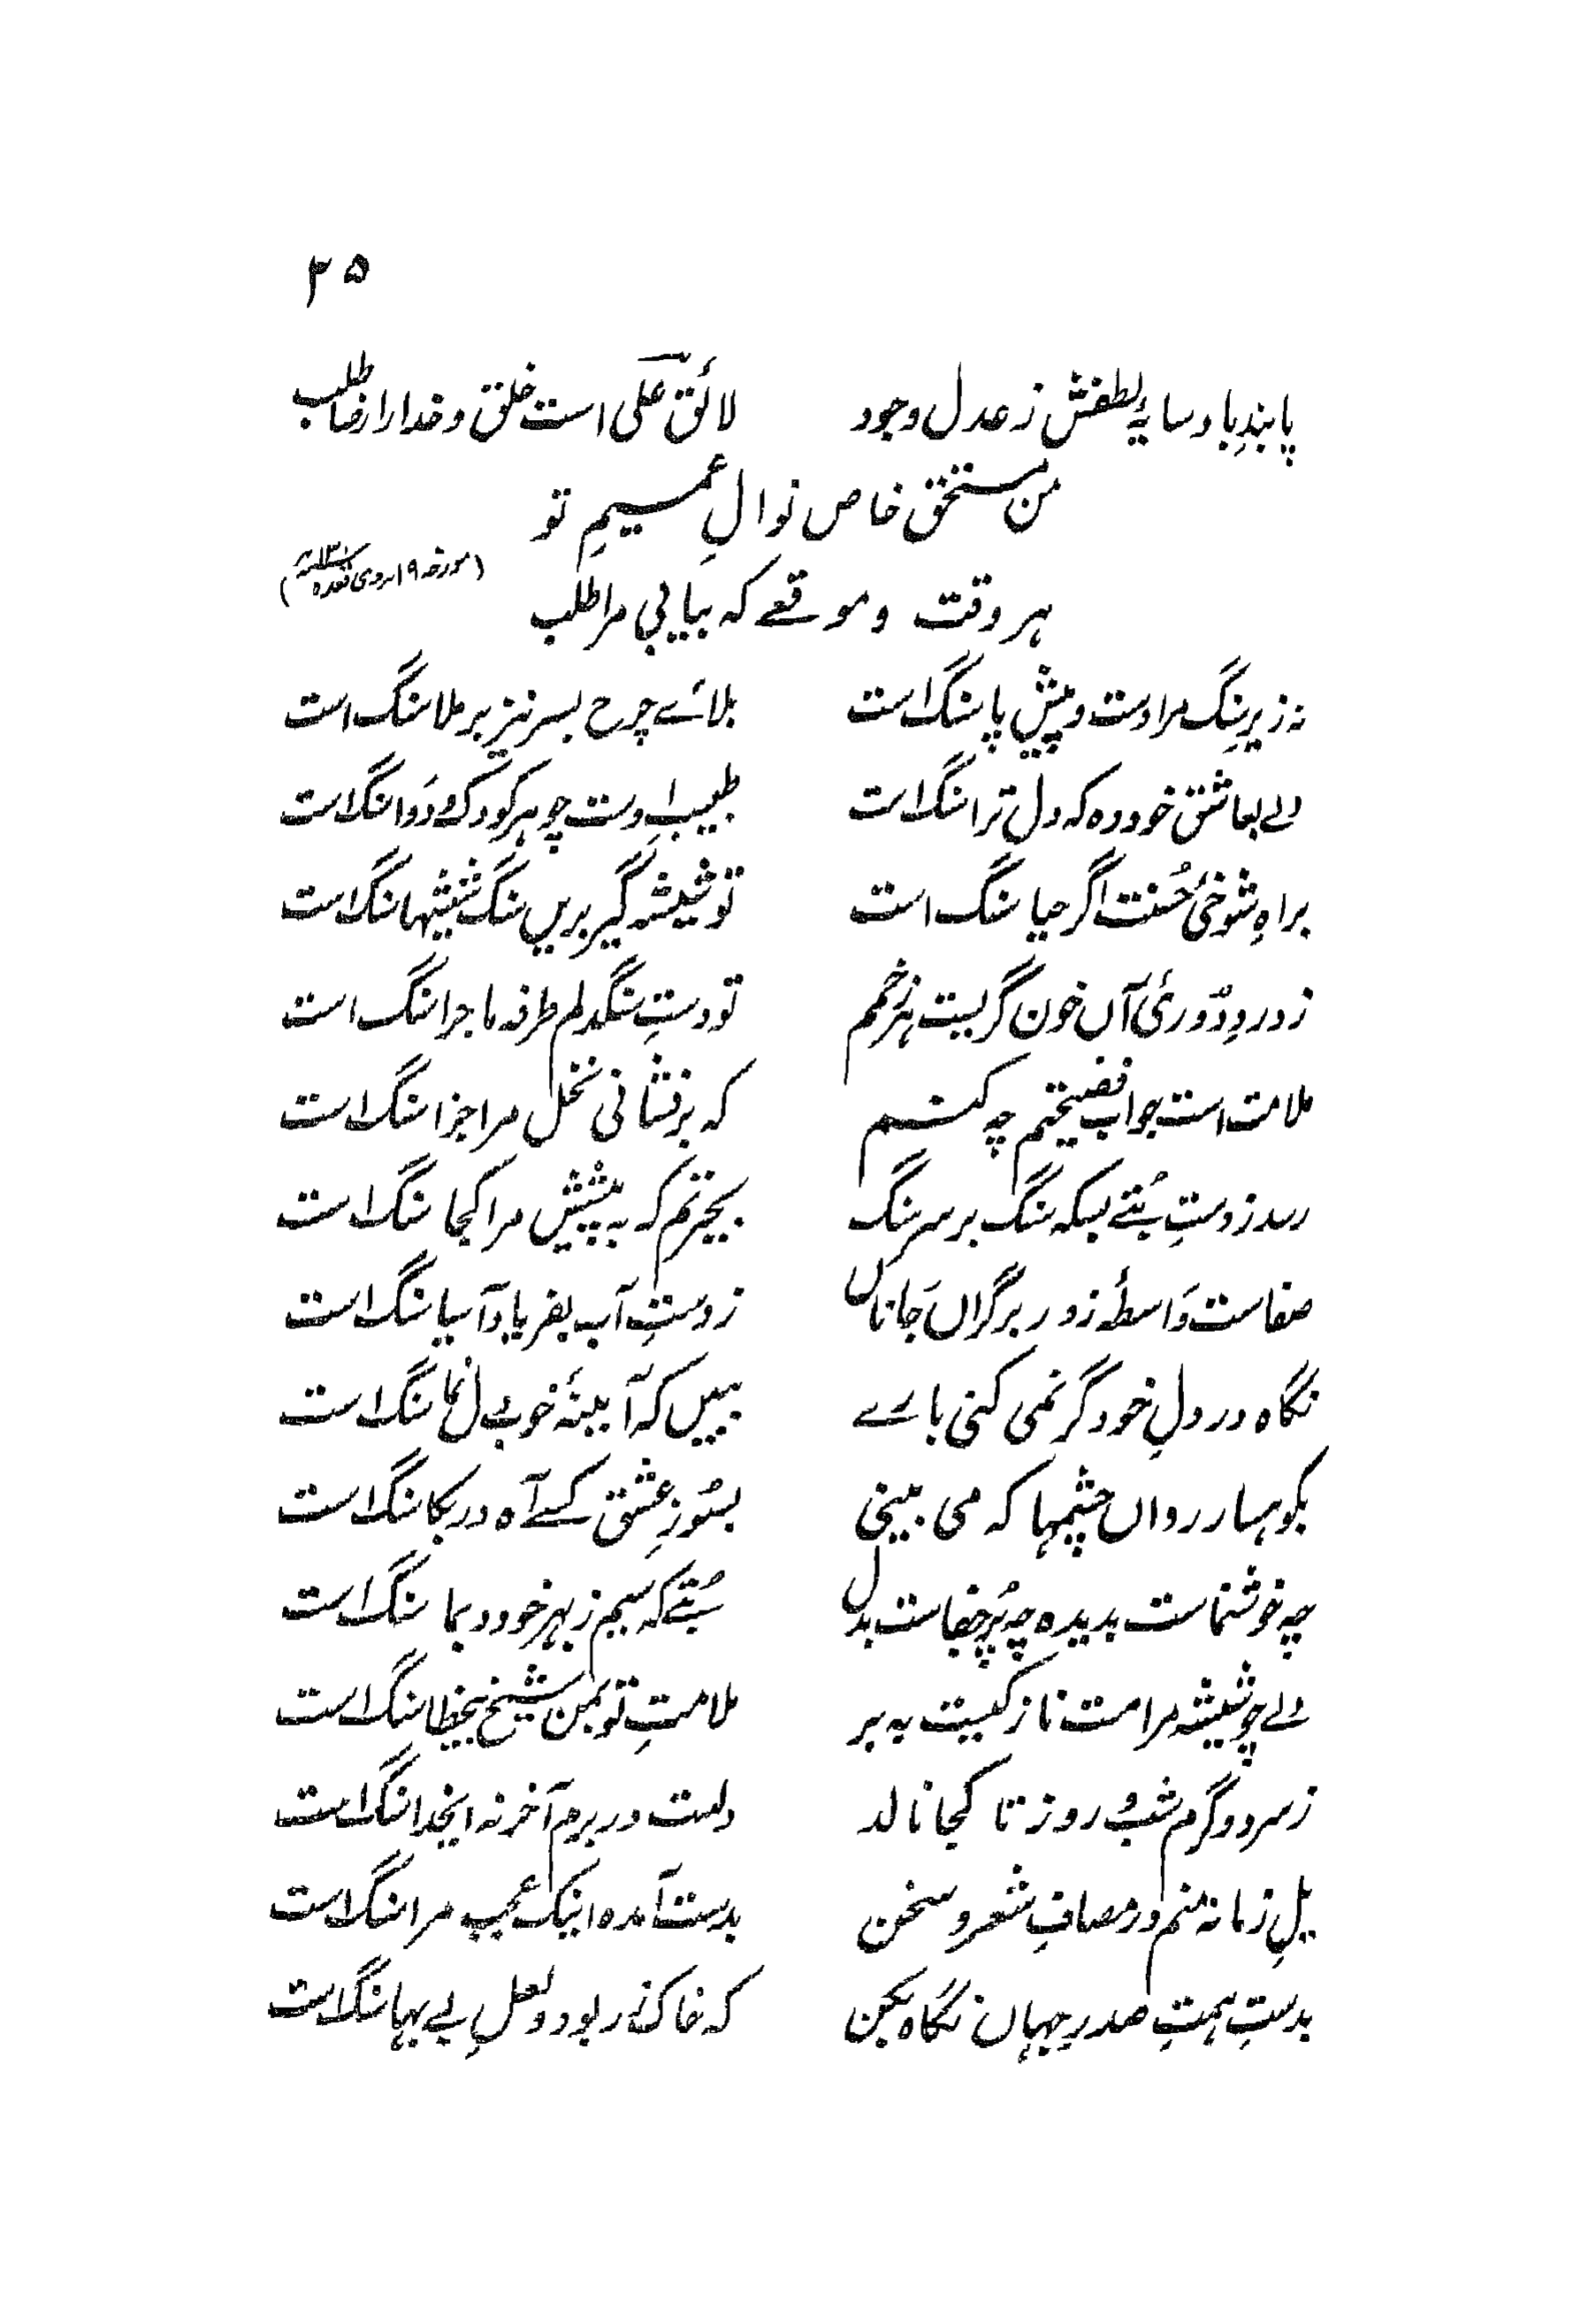 ۲۵
پابندِ باد سایۂ لطفش ز عدل وجود لائق علی است خلق و خدا را رضا طلب
من مستحق خاص نوالِ عمیمِ تو
ہر وقت و موقعے کہ بیابی مرا طلب
(مورخہ ۱۹ ذی قعدہ
نہ زیرِ سنگ مرا دست و پیش پا سنگ است بلائے چرخ بسر نیز برملا سنگ است
دلے بعاشق خود دہ کہ دل ترا سنگ است طبیب اوست چو ہر کودکے دوا سنگ است
براہِ شوخیٔ حُسنت اگر حیا سنگ است تو شیشہ گیر بریں سنگ شیشہا سنگ است
ز دردِ دُوریٔ آں خون گریست ہر زخمم تو دستِ سنگدلم طرفہ ماجرا سنگ است
ملامت است جواب فضیحتم چہ کنم کہ برفشانی نخل مرا جزا سنگ است
رسد ز دستِ بُتے بسکہ سنگ بر سر سنگ بحیرتم کہ بہ پیشش مرا کجا سنگ است
صفاست واسطۂ زور بر گراں جاناں ز دستِ آب بفریاد آسیا سنگ است
نگاہ در دلِ خود گر نمی کنی بارے ببیں کہ آئینۂ خوبے ل نما سنگ است
بکوہسار رواں چشمہا کہ می بینی بسوزِ عشق کسے آہ در بکا سنگ است
چہ خوشنماست بدیدہ چہ پُرجفاست بدل بُتے کہ سیم ز بہر خود و بما سنگ است
دلے چو شیشہ مرا مست نازکیست بہ بر ملامتِ تو بمن شیخ بیخطا سنگ است
ز سرد و گرم شب و روز تا کجا نالد دلست در برم آخر نہ ایخدا سنگ است
یلِ زمانہ منم در مصافِ شعر و سخن بدست آمدہ اینک عجب مرا سنگ است
بدستِ ہمتِ صدرِ جہاں نگاہ بکن کہ خاک زر بود و لعلِ بے بہا سنگ است